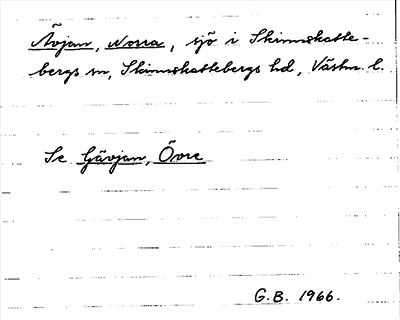 Ävjan, Norra, sjö i Skinnskatte-
bergs sn, Skinnskattebergs hd, Västm. l.
Se Gävjan, Övre
G.B. 1966.